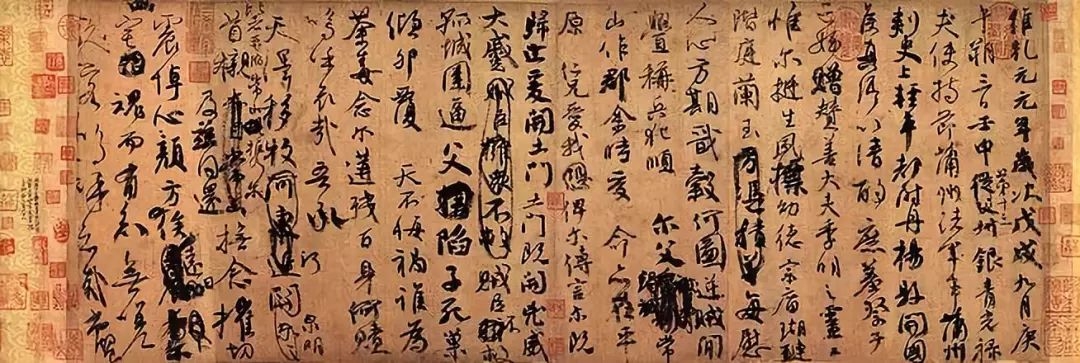 維乾元元年歲次戊戌九月庚
午朔三日壬申第十三叔銀青光祿
夫使持節蒲州諸軍事蒲州
刺史上輕車都尉丹楊縣開國
侯真卿以清酌庶羞祭于
亡姪贈贊善大夫季明之靈曰
惟爾挺生夙標幼德宗廟瑚璉
階庭蘭玉每慰
人心方期戩穀何圖逆賊閒
釁稱兵犯順爾父竭誠常
山作郡余時受命亦在平
原仁兄愛我俾爾傳言爾既
歸止爰開土門土門既開兇威
大蹙賊臣不救
孤城圍逼父陷子死巢
傾卵覆天不悔禍誰為
荼毒念爾遘殘百身何贖
嗚呼哀哉吾承
天澤移牧河關泉明
首櫬及茲同還撫念摧切
震悼心顏方俟
宅魂而有知無嗟
久客嗚呼哀哉尚饗